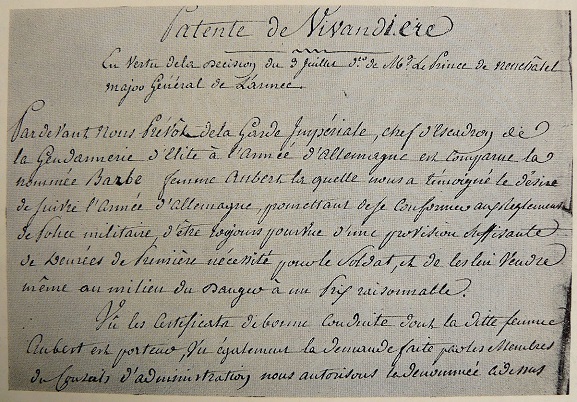 Patente de Vivandiere
En Vertu de la Decision du 3 Juillet dr. de Mgr. Le Prince de neuchâtel
major Général de L'armée.
Pardevant Nous Prévôt de la Garde Impériale, chef d'Escadron de
la Gendarmerie d'Elite à l'armée d'allemagne est Comparue la
nommée Barbe femme Aubert la quelle nous a témoigné le désire
de suivre l'armée d'allemagne, promettant de se Conformer aux règlements
de Police militaire, d'être toujours pourvue d'une provision suffisante
de Denrées de Première nécéssité pour le Soldat, et de les lui Vendre
même au milieu du Danger à un Prix raisonnable.
Vû les Certificats de bonne Conduite dont la ditte femme
Aubert est porteur, Vu également la demande faite par les Membres
du Conseils d'administration, nous autorisons la dénommée ci dessus